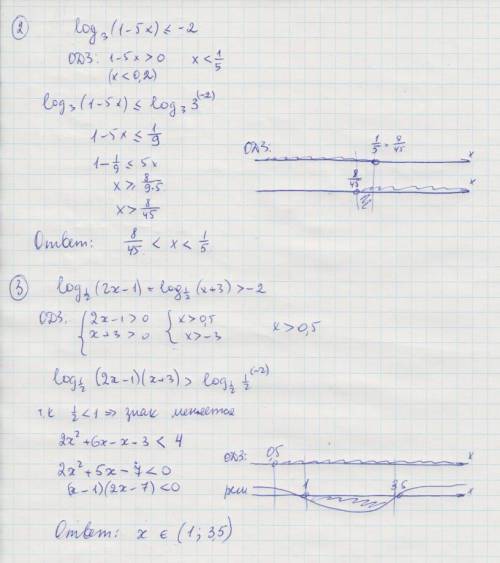 ② log₃(1-5x) ≤ -2
ОДЗ: 1-5x > 0   x < 1/5
(x < 0,2)
log₃(1-5x) ≤ log₃ 3^(-2)
1-5x ≤ 1/9
1 - 1/9 ≤ 5x
x ≥ 8/(9·5)
x > 8/45
ОДЗ: 1/5 = 9/45 x
8/45 x
Ответ: 8/45 < x < 1/5
③ log_½ (2x-1) + log_½ (x+3) > -2
ОДЗ. { 2x-1 > 0 { x > 0,5
x+3 > 0   x > -3   x > 0,5
log_½ (2x-1)(x+3) > log_½ ½^(-2)
т,к ½ < 1 => знак меняется
2x² + 6x - x - 3 < 4
2x² + 5x - 7 < 0
(x-1)(2x-7) < 0
ОДЗ: 0,5 x
реш 1 3,5 x
Ответ: x ∈ (1; 3,5)